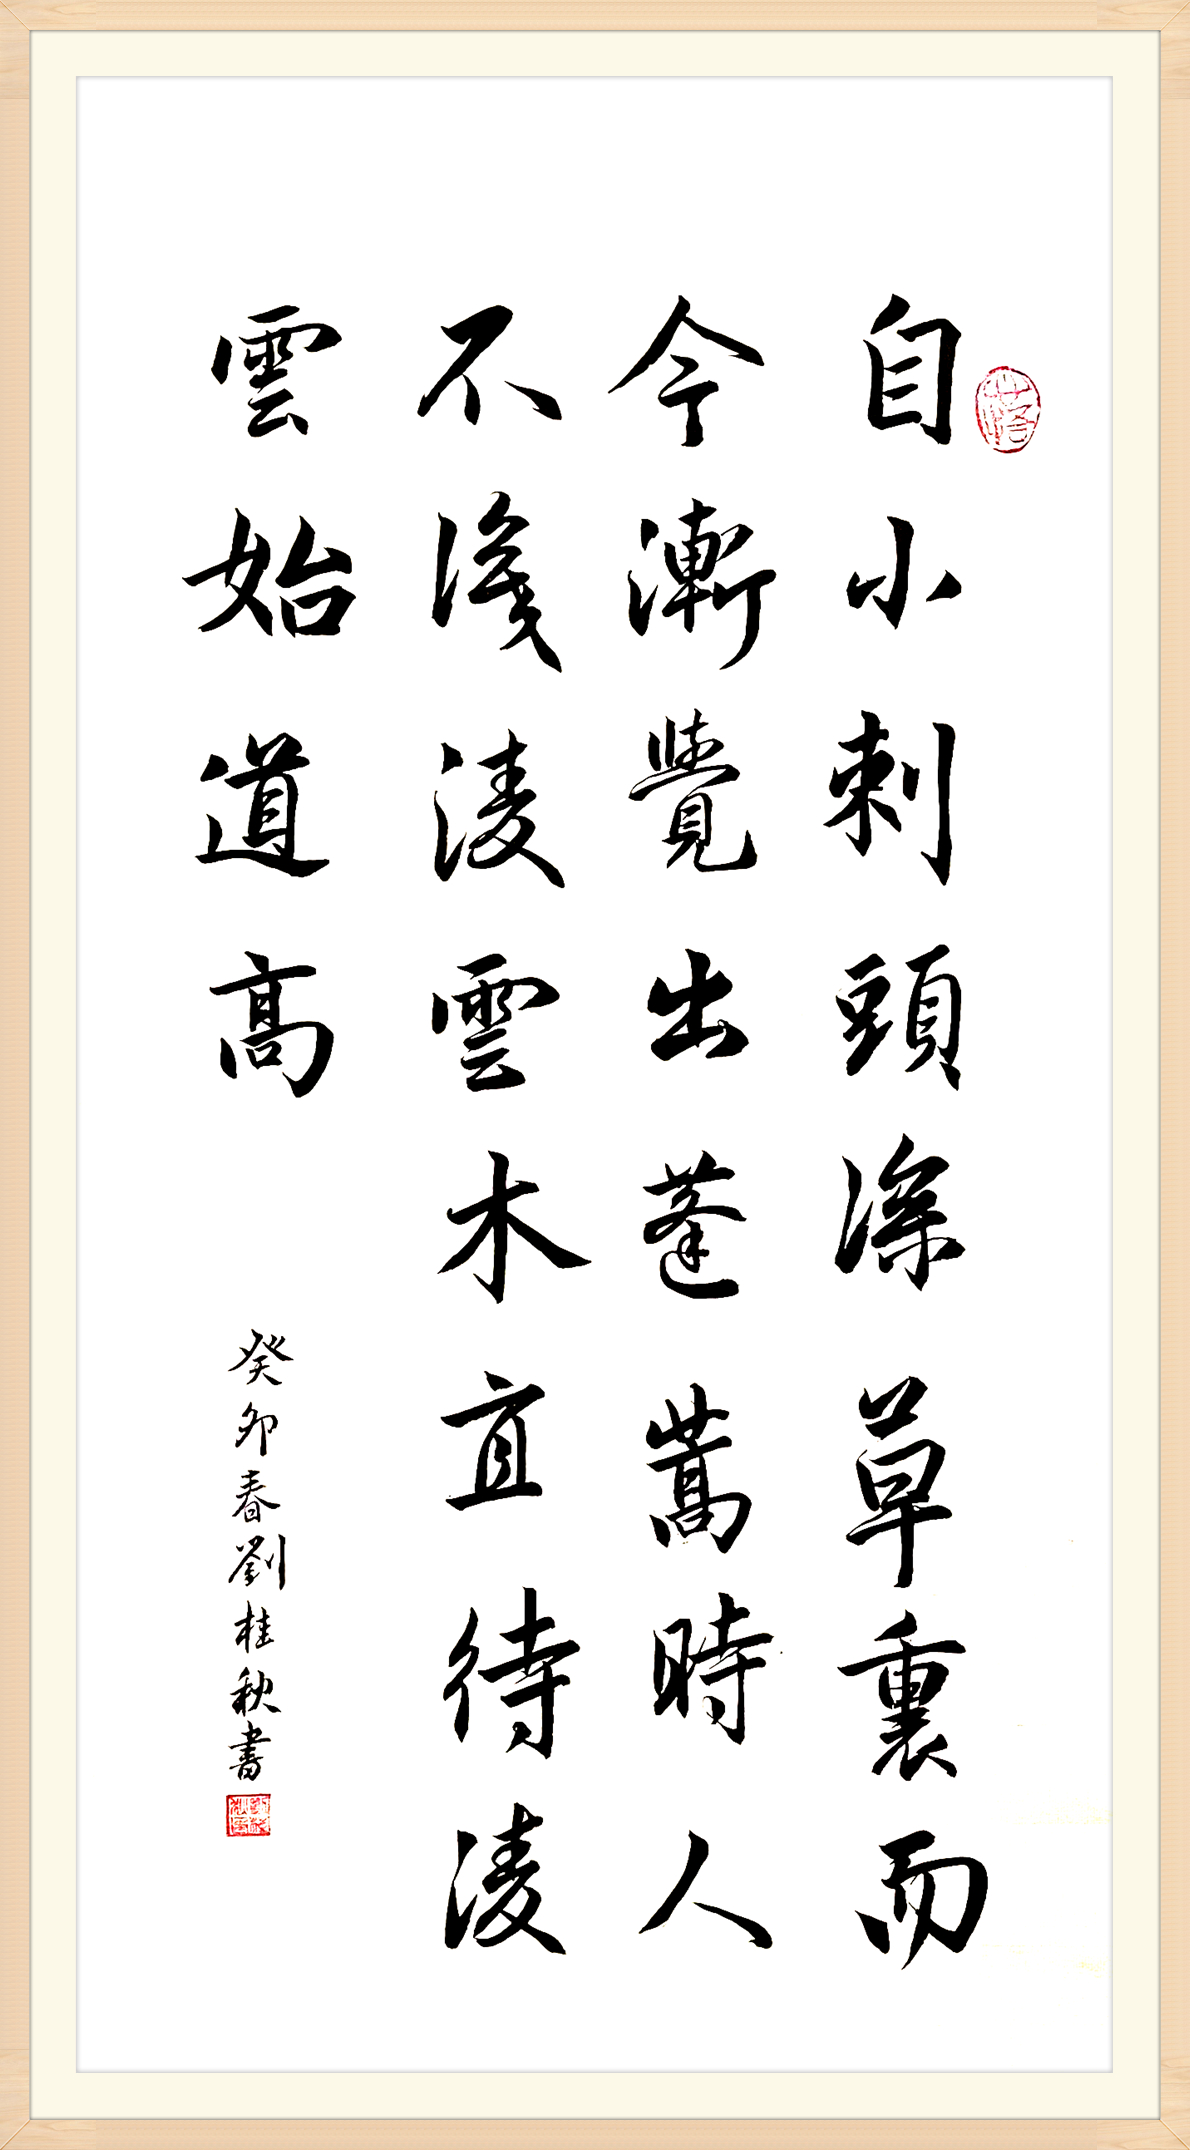 自小刺頭深草裏而
今漸覺出蓬蒿時人
不識淩雲木直待淩
雲始道高
癸卯春劉桂秋書